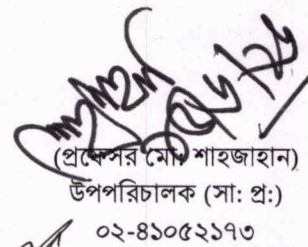 (প্রফেসর মোঃ শাহজাহান)
উপপরিচালক (সা: প্র:)
০২-৪১০৫২১৭৩